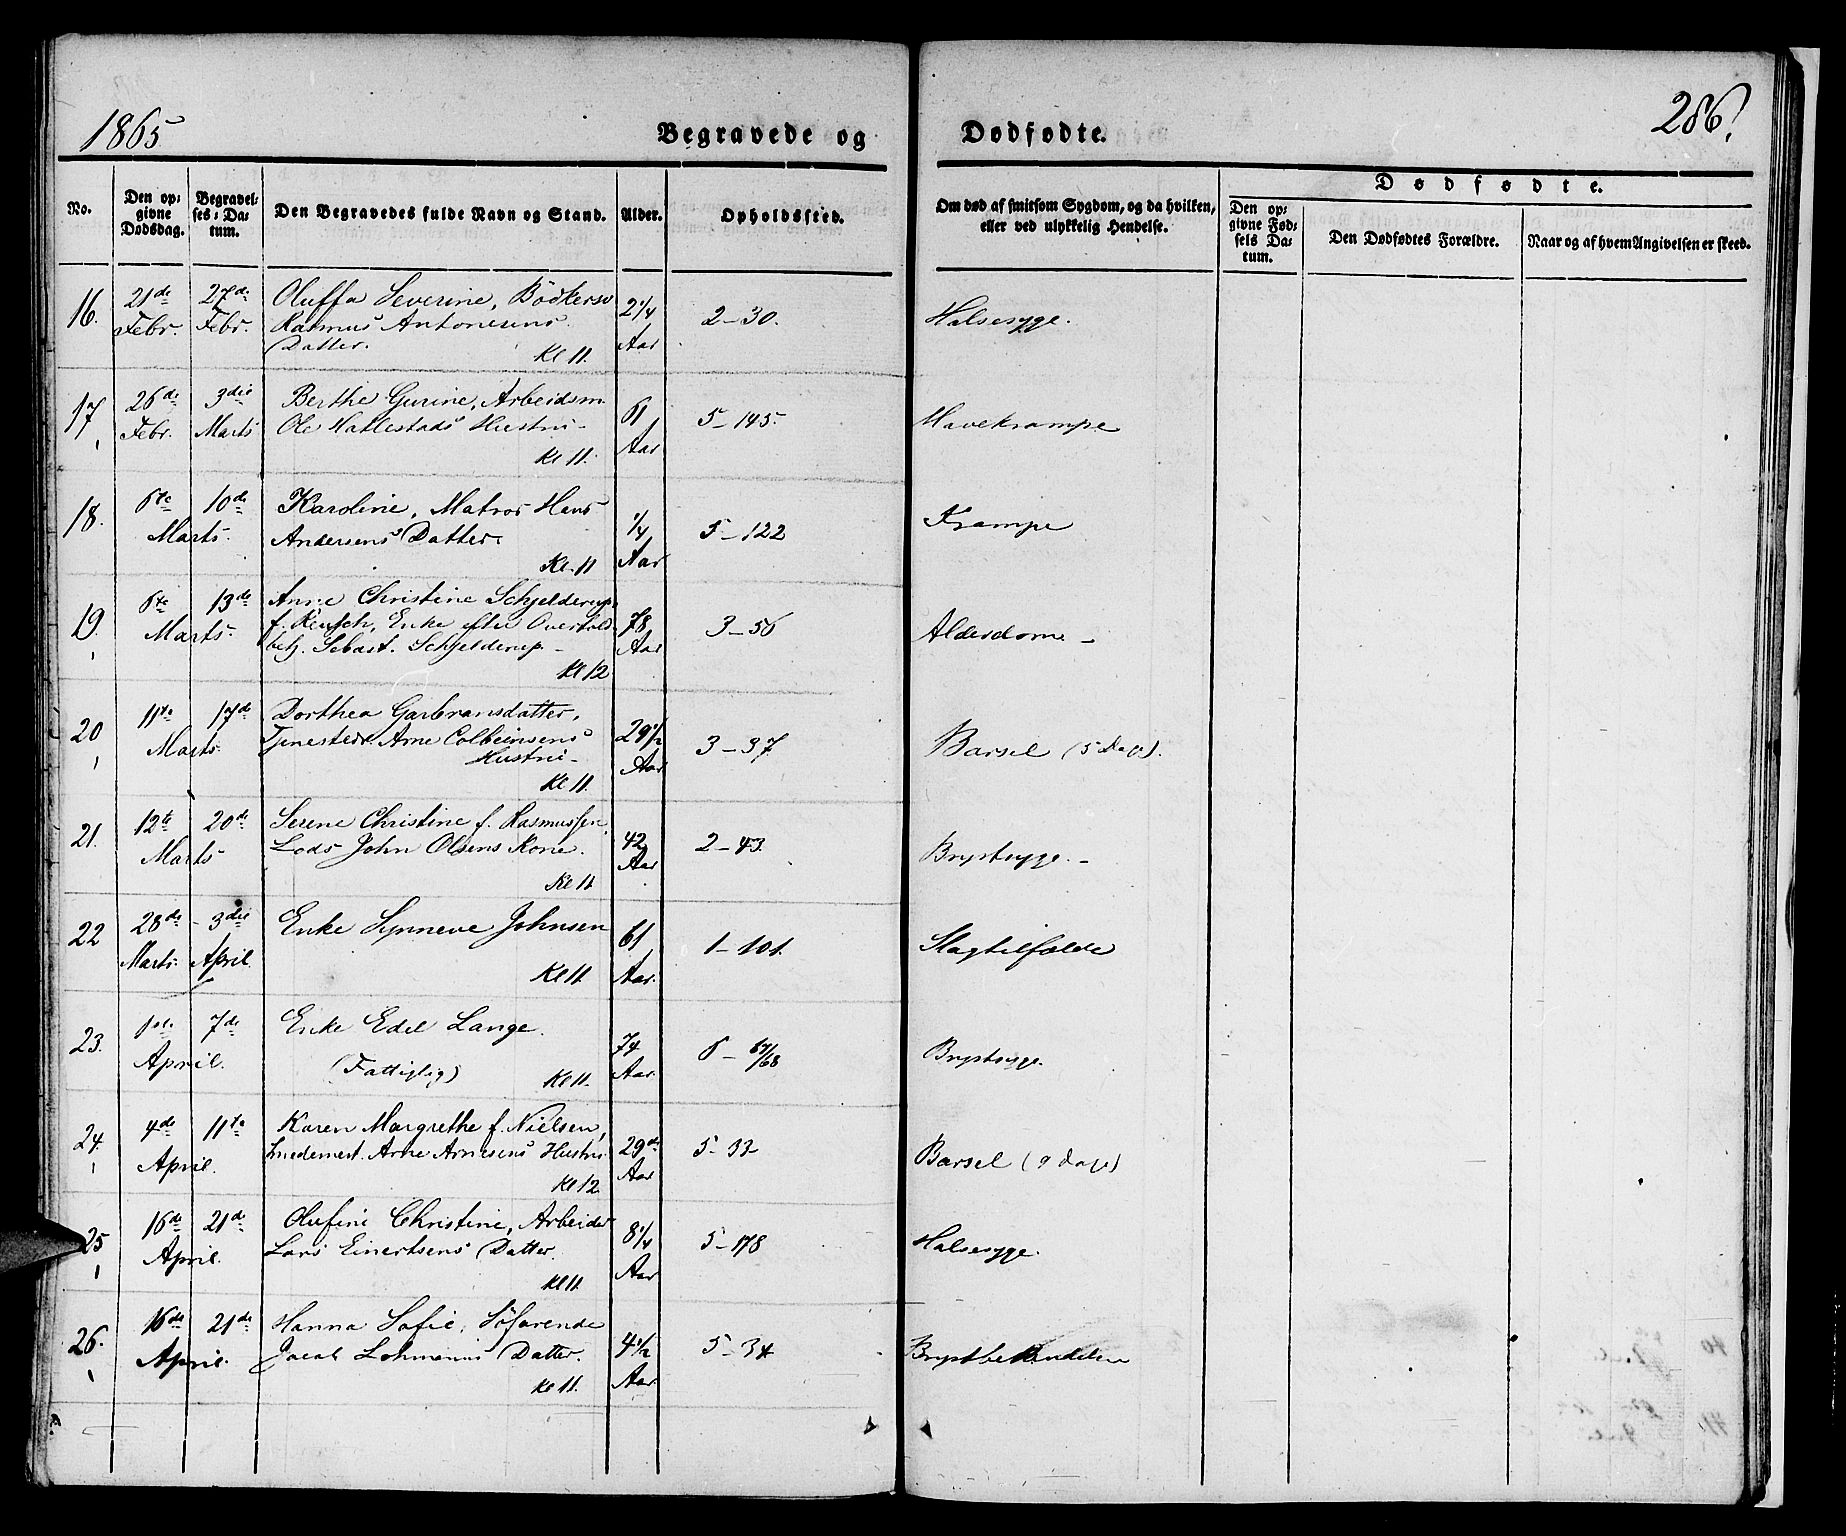 1865
Begravede og Dødfødte.
286.
No.
Den op-
givne
Dødsdag.
Begravel-
ses-Da-
tum.
Den Begravedes fulde Navn og Stand.
Alder.
Opholdssted.
Om død af smitsom Sygdom, og da hvilken,
eller ved ulykkelig Hendelse.
Dødfødte.
Den op-
givne Fød-
sels Da-
tum.
Den Dødfødtes Forældre.
Naar og af hvem Angivelsen er skeed.
16. 21de Febr. 27de Febr. Oluffa Severine, Bödkersv
Rasmus Antonesens
Datter. Kl 11. 2 1/4 Aar 2-30. Halsesyge.
17 26de Febr. 3die Marts Berthe Gurine, Arbeidsm
Ole Hatlestads Hustru-
Kl 11. 61 Aar 5-145. Mavekrampe
18. 6te 10de Marts. Karoline, Matros Hans
Andersens Datter.
Kl. 11 1/4 Aar 5-122 Krampe
19. 6te 13de Marts. Anne Christine Schjelderup
f. Reusch, Enke efter Overtold
betj. Sebast. Schjelderup-
Kl 12 78 Aar 3-56 Alderdom-
20 11te 17de Marts. Dorthea Garbransdatter,
Tjenestedr. Arne Colbeinsens
Hustru-
Kl 11. 29 1/2 Aar 3-37 Barsel (5 Dage).
21. 12te 20de Marts Serene Christine f. Rasmussen,
Lods John Olsens Kone.
Kl 11 42 Aar 2-43. Brystsyge.-
22 28de Marts. 3die April. Enke Synneve Johnsen
Kl 11. 61 Aar. 1-101. Slagtilfælde
23. 1ste 7de April. Enke Edel Lange.
(Fattiglig) Kl 11. 74 Aar. 6-67/68 Brystsyge.
24. 4de 11te April. Karen Margrethe f. Nielsen,
Smedemest. Arne Arnesens Hustru
Kl 12. 29 Aar 5-32 Barsel (9 Dage)
25 16de 21de April. Olufine Christine, Arbeider
Lars Einertsens Datter.
Kl 11. 8 1/4 Aar 5-178 Halsesyge.
26. 16de 21de April. Hanna Sofie, Söfarende
Jacob Lohmanns Datter.
Kl 11. 4 1/2 Aar. 5-34